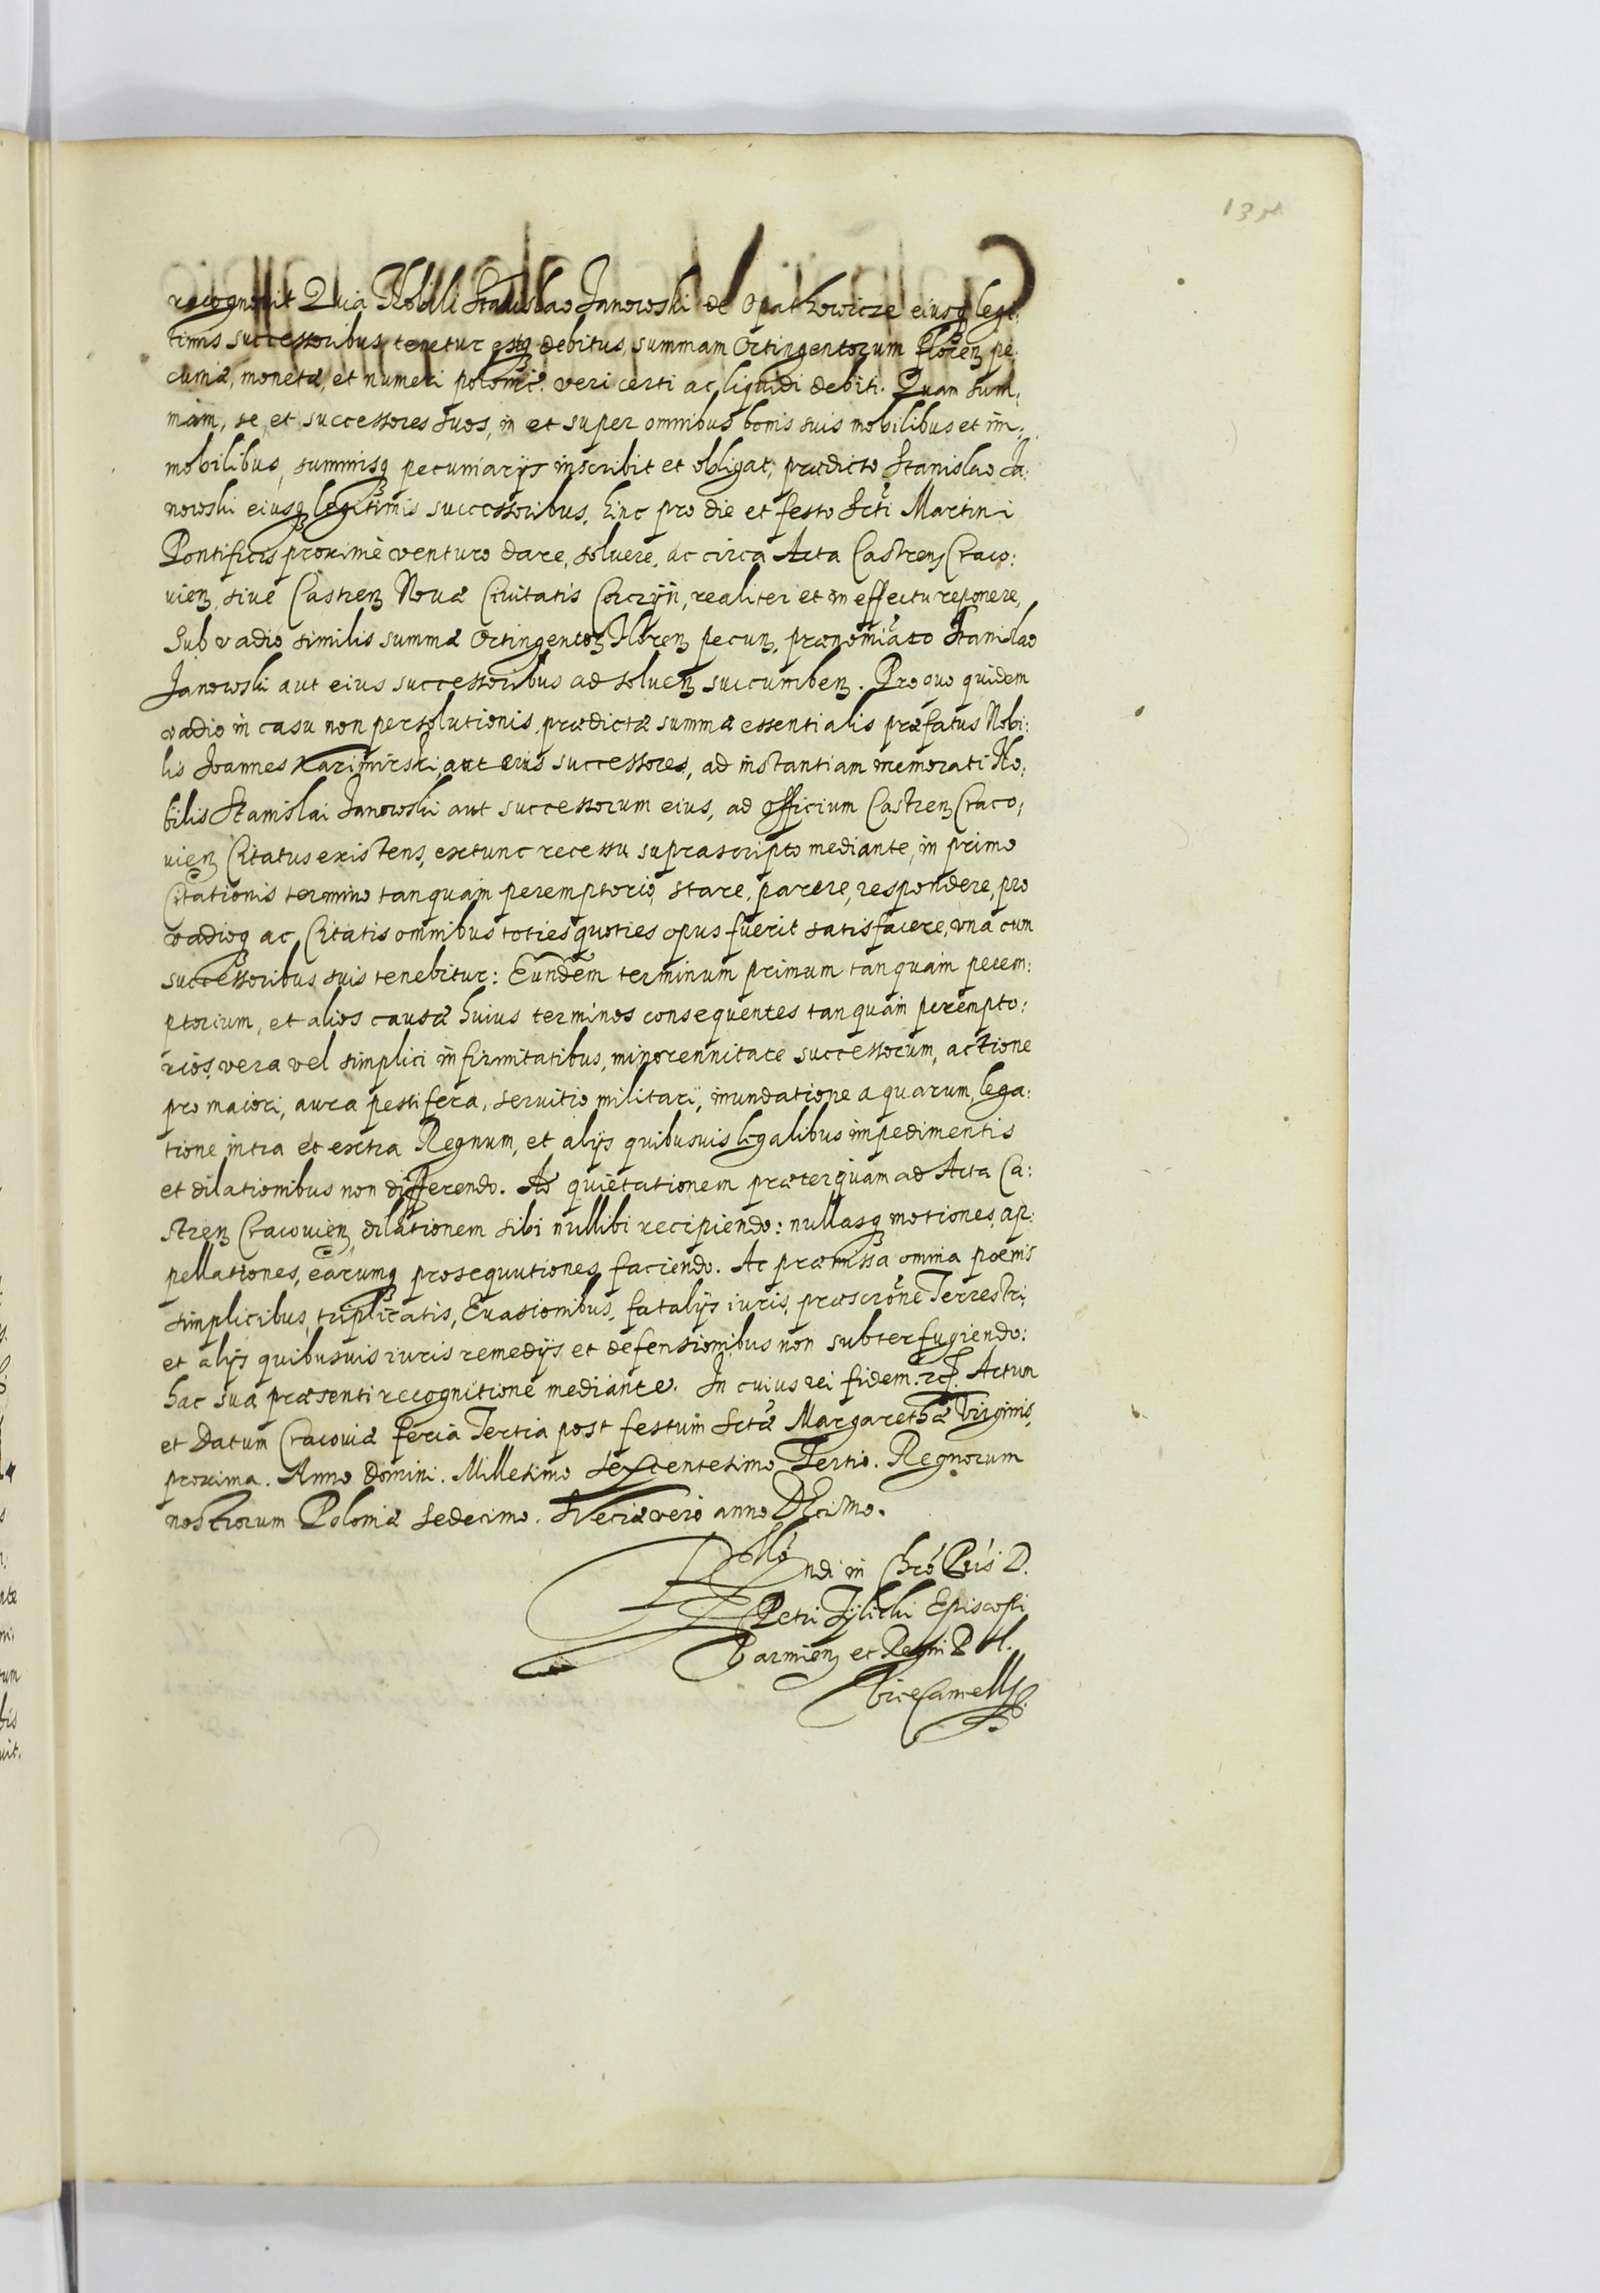 recognovit Quia Nobili Stanislao Janowski de Opatkowicze eiusq legi:
timis successoribus, tenetur estq debitus, summam Octingentorum Floren pe:
cuniæ, monetæ, et numeri polonic. veri certi ac liquidi debiti. Quam sum:
mam, se et successores suos, in et super omnibus bonis suis mobilibus et im:
mobilibus, summisq pecuniarijs inscribit et obligat, prædicto Stanislao Ja:
nowski eiusq legitimis successoribus, hinc pro die et festo Scti Martini
Pontificis proxime venturo dare, soluere, ac circa Acta Castren Craco:
uien, siue Castren Nouæ Ciuitatis Corczyn, realiter et in effectu reponere,
Sub vadio similis summæ Octingentor Floren pecun, prænomiato Stanislao
Janowski aut eius successoribus ad soluen succumben. Pro quo quidem
vadio in casu non persolutionis, prædictæ summæ essentialis præfatus Nobi:
lis Joannes Karimirski, aut eius successores, ad instantiam memorati No:
bilis Stanislai Janowski aut successorum eius, ad officium Castren Craco:
uien Citatus existens, extunc recessu suprascripto mediante, in primo
Citationis termino tanquam peremptorio, stare, parere, respondere, pro
vadioq ac Citatis omnibus toties quoties opus fuerit satisfacere, vna cum
successoribus suis tenebitur: Eundem terminum primum tanquam perem:
ptorium, et alios causæ huius terminos consequentes tanquam perempto:
rios, vera vel simplici infirmitatibus, minorennitate successorum, actione
pro maiori, aura pestifera, seruitio militari, inundatione aquarum, lega:
tione intra et extra Regnum, et alijs quibusuis legalibus impedimentis
et dilationibus non differendo. Ad quietationem præterquam ad Acta Ca:
stren Cracouien, dilationem sibi nullibi recipiendo: nullasq motiones, ap:
pellationes, earumq prosequutiones, faciendo. Ac præmissa omnia pœnis
simplicibus, triplicatis, Euasionibus, fatalijs iuris, præscrone Terrestri,
et alijs quibusuis iuris remedijs et defensionibus non subterfugiendo:
hac sua præsenti recognitione mediante. In cuius rei fidem. etc. Actum
et Datum Cracouiæ feria Tertia post festum Sctæ Margarethæ Virginis,
proxima. Anno Domini. Millesimo Sexcentesimo Tertio. Regnorum
nostrorum Poloniæ sedecimo. Sueciæ vero anno Decimo.
Rndi in Chro Pris D.
Petri Tylicki Episcopi
Varmien et Regni P
ViceCancellj